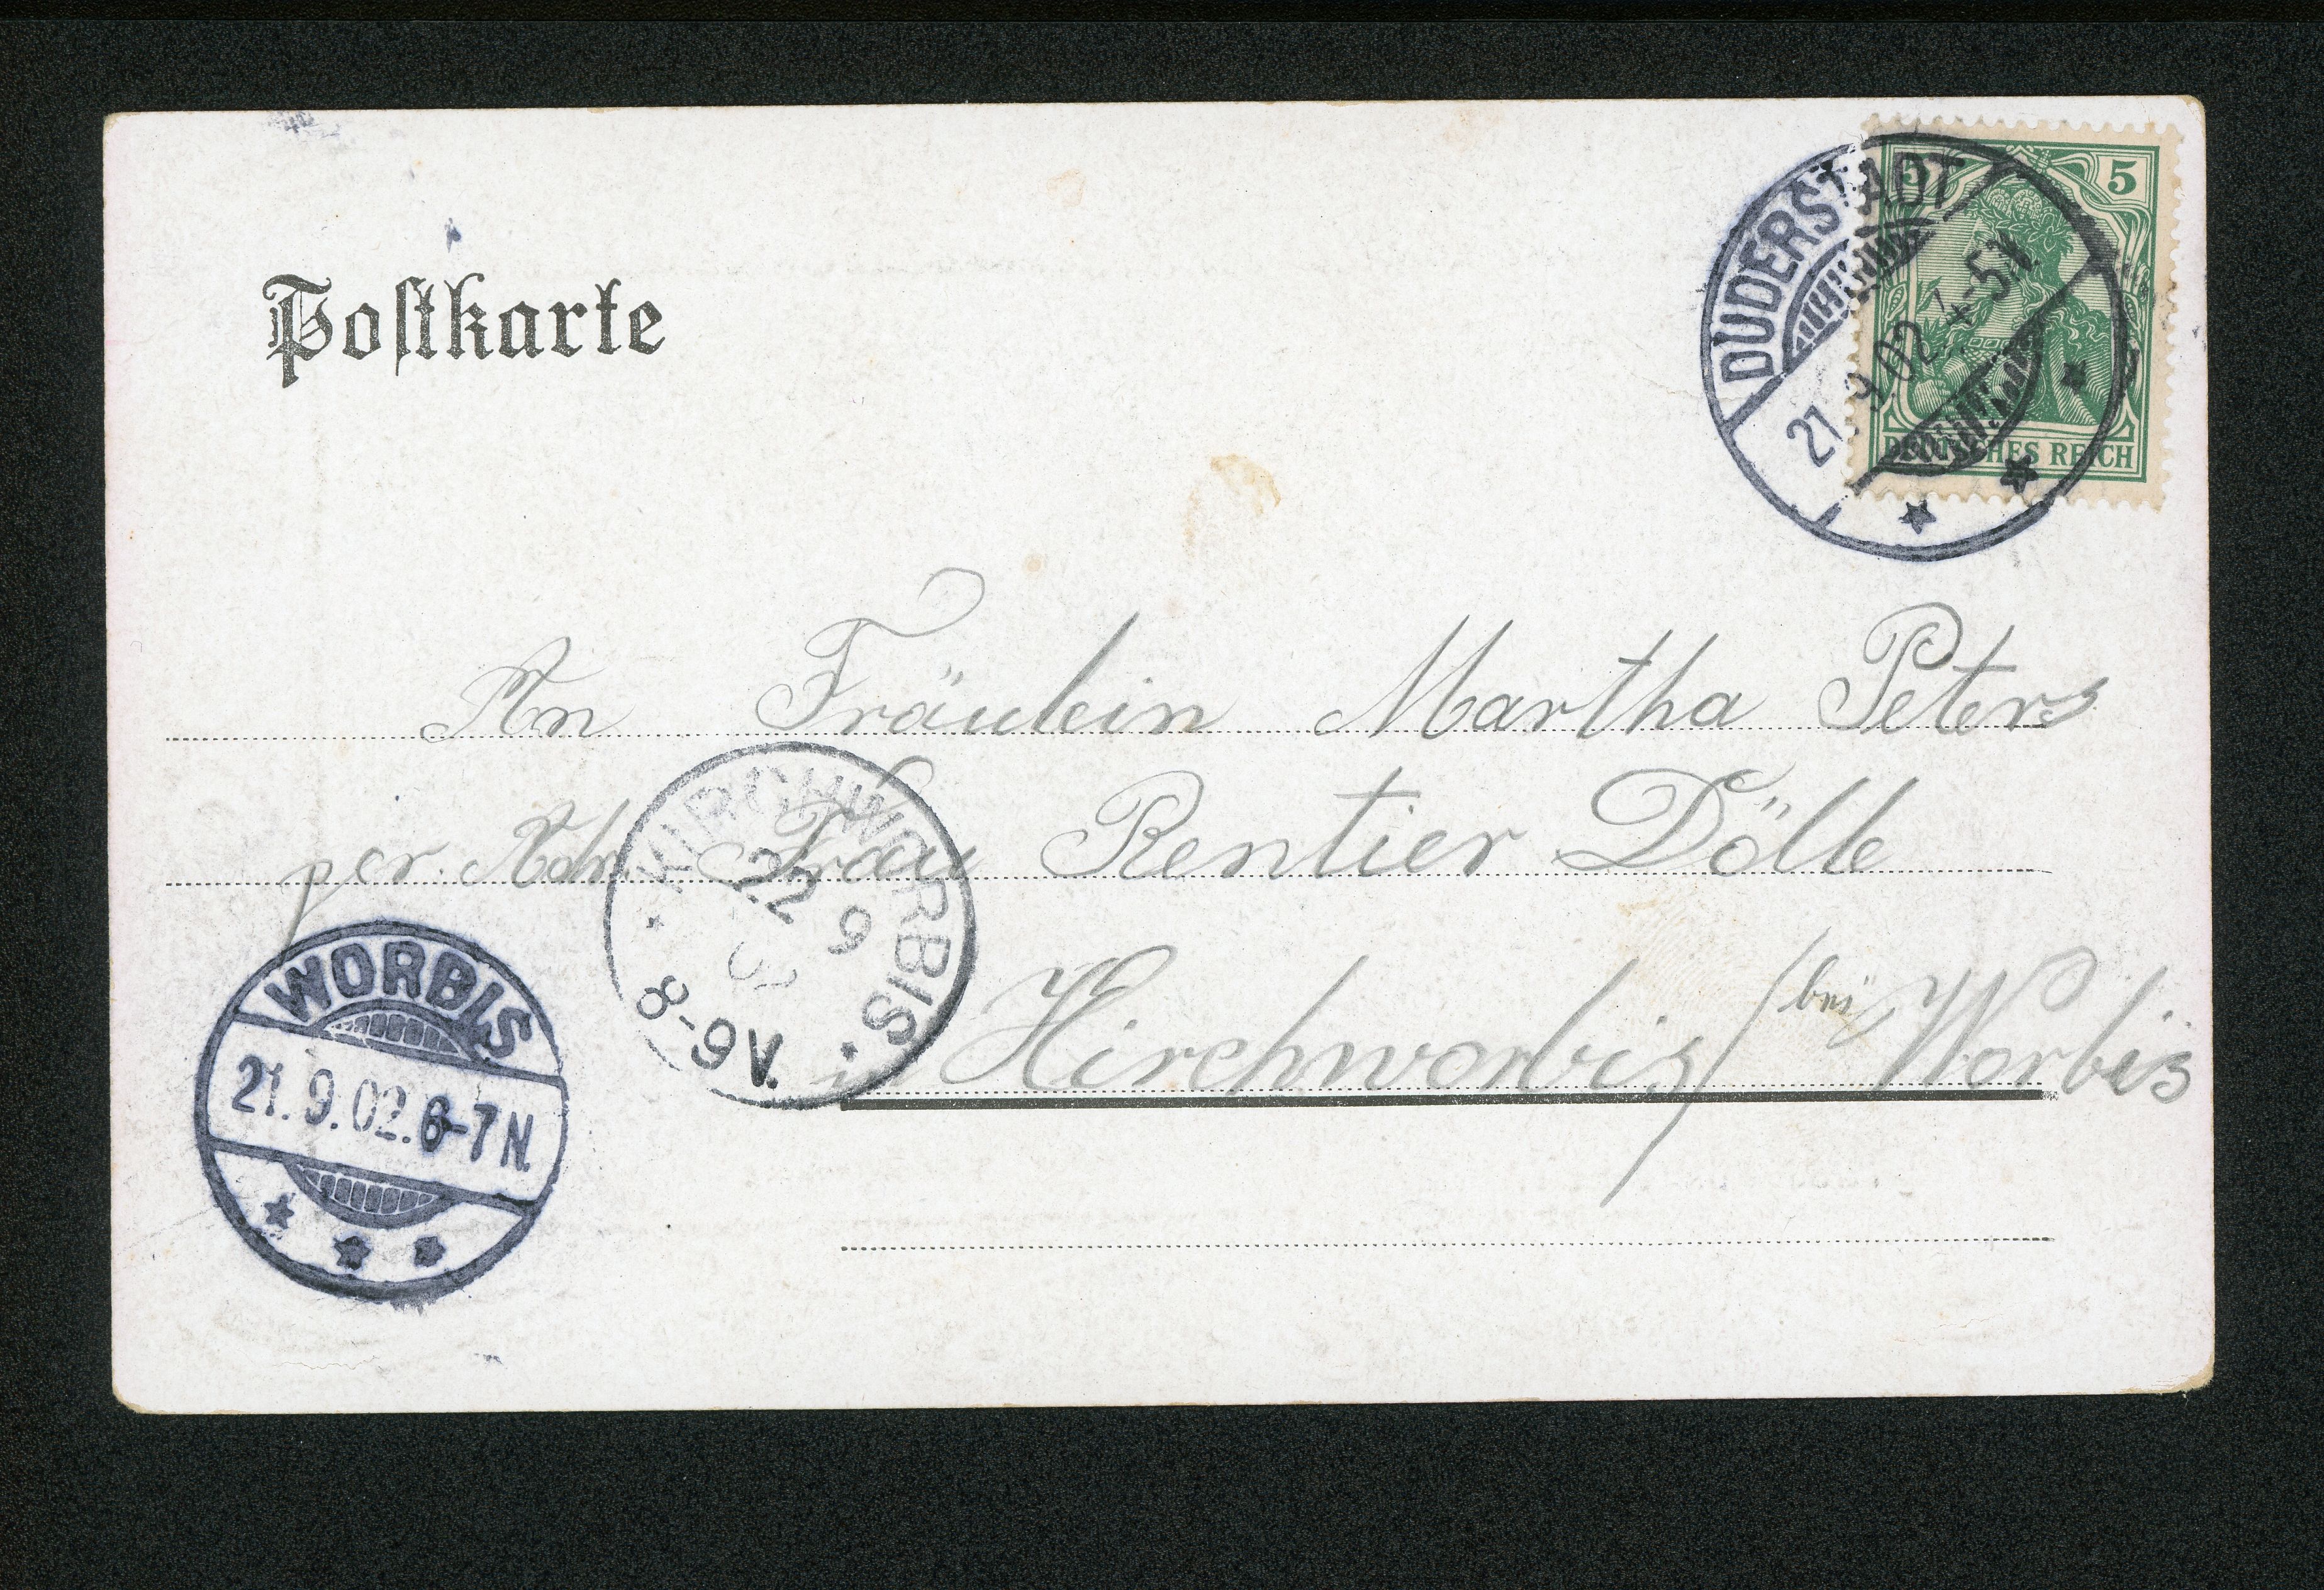 Postkarte
5 5
DEUTSCHES REICH
DUDERSTADT
21.9.02. 4-5N
An Fräulein Martha Peters
per. Adr. Frau Rentier Dölle
in Kirchworbis / bei Worbis
KIRCHWORBIS
22 9
02
8-9V.
WORBIS
21.9.02.6-7N.